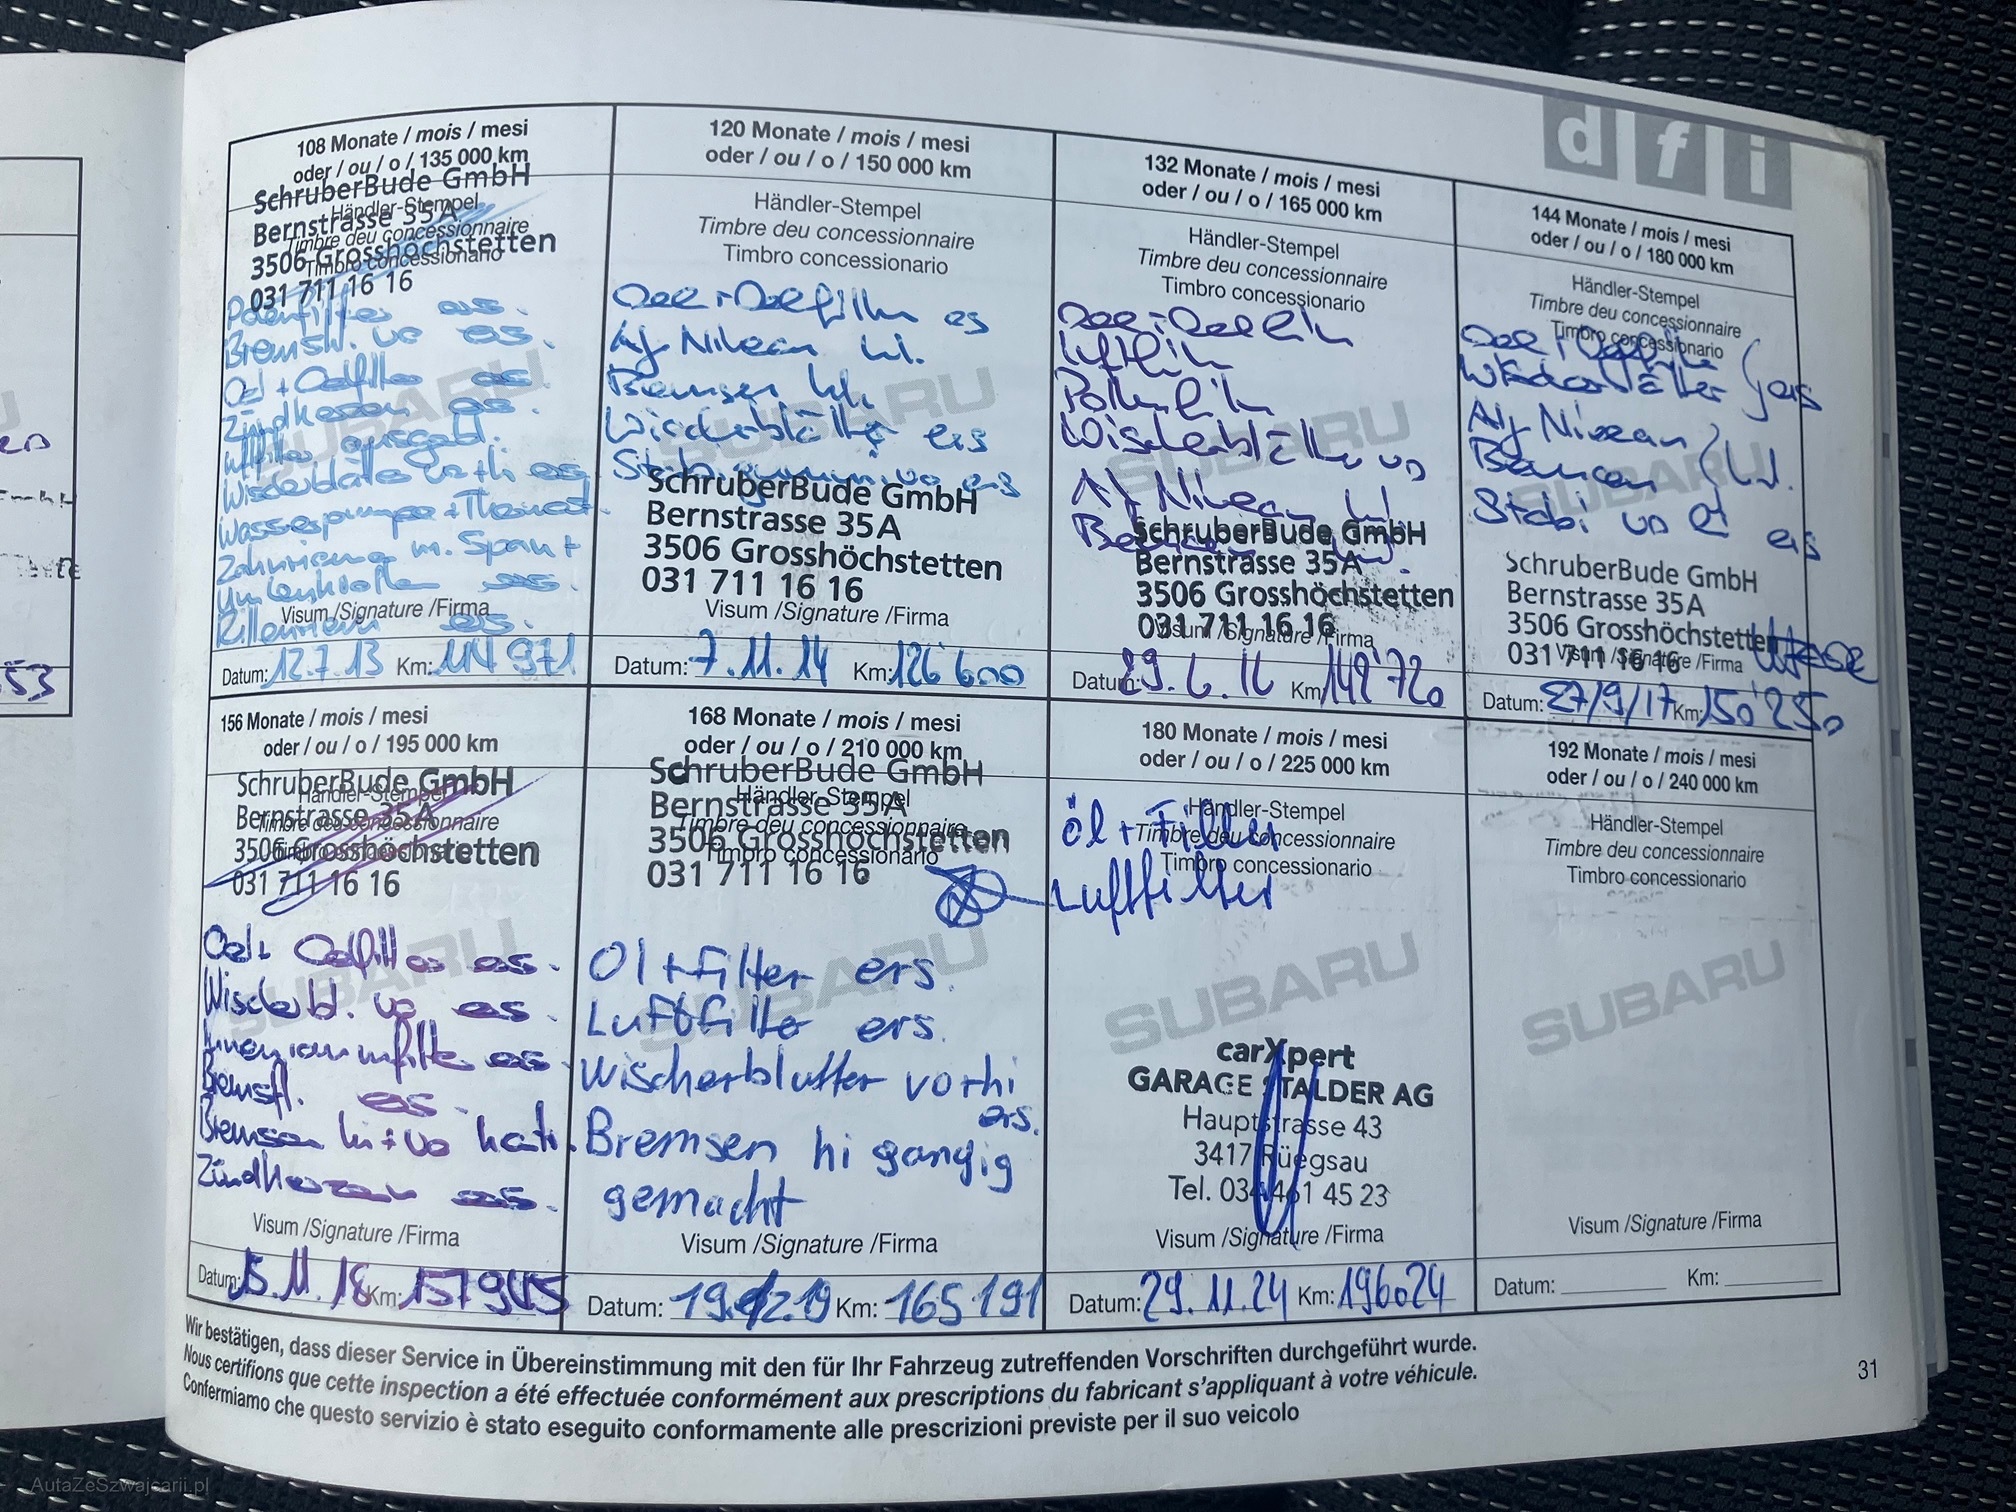 dfi
108 Monate / mois / mesi
oder / ou / o / 135 000 km
SchruberBude GmbH
Händler-Stempel
Bernstrasse 35A
Timbre deu concessionnaire
3506 Grosshöchstetten
Timbro concessionario
031 711 16 16
Pollenfilter ers.
Bremsfl. vo ers.
Oel + Oelfilter ers.
Zündkerzen ers.
Luftfilter ausgebl.
Wischerblätter vo + hi ers.
Wasserpumpe + Thermost.
Zahnriemen m. Spann +
Umlenkrolle ers.
Visum /Signature /Firma
Rillenriem ers.
Datum: 12.7.13 Km: 114 971
120 Monate / mois / mesi
oder / ou / o / 150 000 km
Händler-Stempel
Timbre deu concessionnaire
Timbro concessionario
Oel + Oelfilter ers
Alg Niveau ktl.
Bremsen ktl.
Wischerblätter ers
Stabigummi vo ers
SchruberBude GmbH
Bernstrasse 35A
3506 Grosshöchstetten
031 711 16 16
Visum /Signature /Firma
Datum: 7.11.14 Km: 126'600
132 Monate / mois / mesi
oder / ou / o / 165 000 km
Händler-Stempel
Timbre deu concessionnaire
Timbro concessionario
Wischerblätter vo
Niveau
SchruberBude GmbH
Bernstrasse 35A
3506 Grosshöchstetten
031 711 16 16
Visum /Signature /Firma
Datum: 29.6.16 Km: 142'720
144 Monate / mois / mesi
oder / ou / o / 180 000 km
Händler-Stempel
Timbre deu concessionnaire
Timbro concessionario
Wischerblätter ers
Niveau
Bremsen
Stabi vo ers
SchruberBude GmbH
Bernstrasse 35A
3506 Grosshöchstetten
031 711 16 16
Visum /Signature /Firma
Datum: 27/9/17 Km: 150'250
156 Monate / mois / mesi
oder / ou / o / 195 000 km
SchruberBude GmbH
Händler-Stempel
Bernstrasse 35A
Timbre deu concessionnaire
3506 Grosshöchstetten
Timbro concessionario
031 711 16 16
Oel + Oelfilter ers.
Wischerbl. vo ers.
Innenraumfilter ers.
Bremsfl. ers.
Bremsen hi + vo kontr.
Zündkerzen ers.
Visum /Signature /Firma
Datum: 15.11.18 Km: 157 945
168 Monate / mois / mesi
oder / ou / o / 210 000 km
SchruberBude GmbH
Händler-Stempel
Bernstrasse 35A
Timbre deu concessionnaire
3506 Grosshöchstetten
Timbro concessionario
031 711 16 16
Öl + Filter ers.
Luftfilter ers.
Wischerblutter vo + hi
ers.
Bremsen hi gangig
gemacht
Visum /Signature /Firma
Datum: 19.12.19 Km: 165 191
180 Monate / mois / mesi
oder / ou / o / 225 000 km
Händler-Stempel
Öl + Filter
Timbre deu concessionnaire
Timbro concessionario
Luftfilter
carXpert
GARAGE STALDER AG
Hauptstrasse 43
3417 Rüegsau
Tel. 034 461 45 23
Visum /Signature /Firma
Datum: 29.11.24 Km: 196024
192 Monate / mois / mesi
oder / ou / o / 240 000 km
Händler-Stempel
Timbre deu concessionnaire
Timbro concessionario
SUBARU
SUBARU
SUBARU
SUBARU
SUBARU
SUBARU
SUBARU
SUBARU
Visum /Signature /Firma
Datum: Km:
Wir bestätigen, dass dieser Service in Übereinstimmung mit den für Ihr Fahrzeug zutreffenden Vorschriften durchgeführt wurde.
Nous certifions que cette inspection a été effectuée conformément aux prescriptions du fabricant s'appliquant à votre véhicule.
Confermiamo che questo servizio è stato eseguito conformamente alle prescrizioni previste per il suo veicolo
31
53
AutaZeSzwajcarii.pl